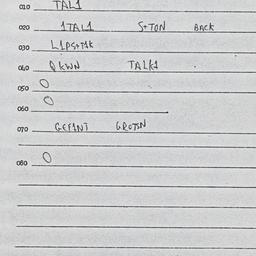 010 TAL1
020 1TAL1 S+TON BACK
030 L1PS+T1K
040 TALK1
050 O
060 O
070 GEF1NT GROTSN
080 O